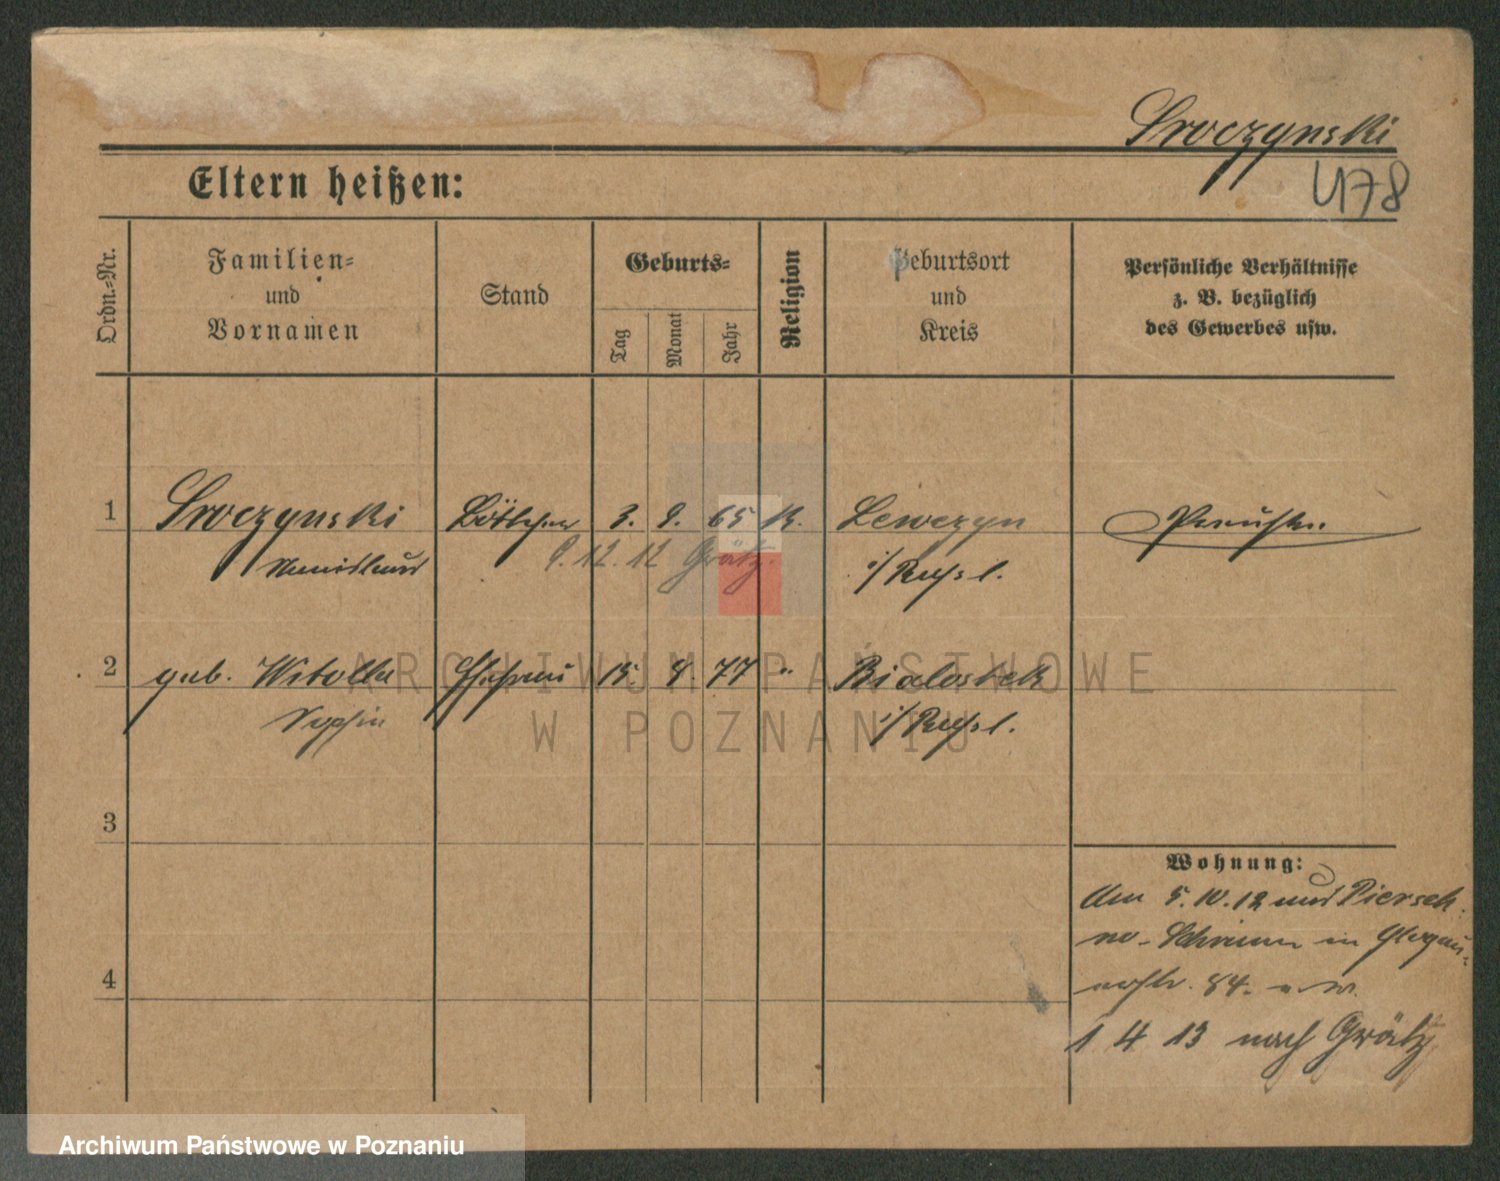 Sroczynski
478
Eltern heißen:
Ordn.-Nr.
Familien-
und
Vornamen
Stand
Geburts-
Tag
Monat
Jahr
Religion
Geburtsort
und
Kreis
Persönliche Verhältnisse
z. B. bezüglich
des Gewerbes usw.
1 Sroczynski Böttcher 3. 9. 65 K. Lewczyn Preuße.
9. 12. 12 Grätz.
i/ Russl.
2 geb. Witolla Ehefrau 15. 8. 77 " Bialostek
Sophie i/ Russl.
ARCHIWUM PAŃSTWOWE
W POZNANIU
3
4
Wohnung:
Am 5. 10. 12 aus Piersch-
no - Schrimm in Glogau-
erstr. 84.
1 4 13 nach Grätz
Archiwum Państwowe w Poznaniu